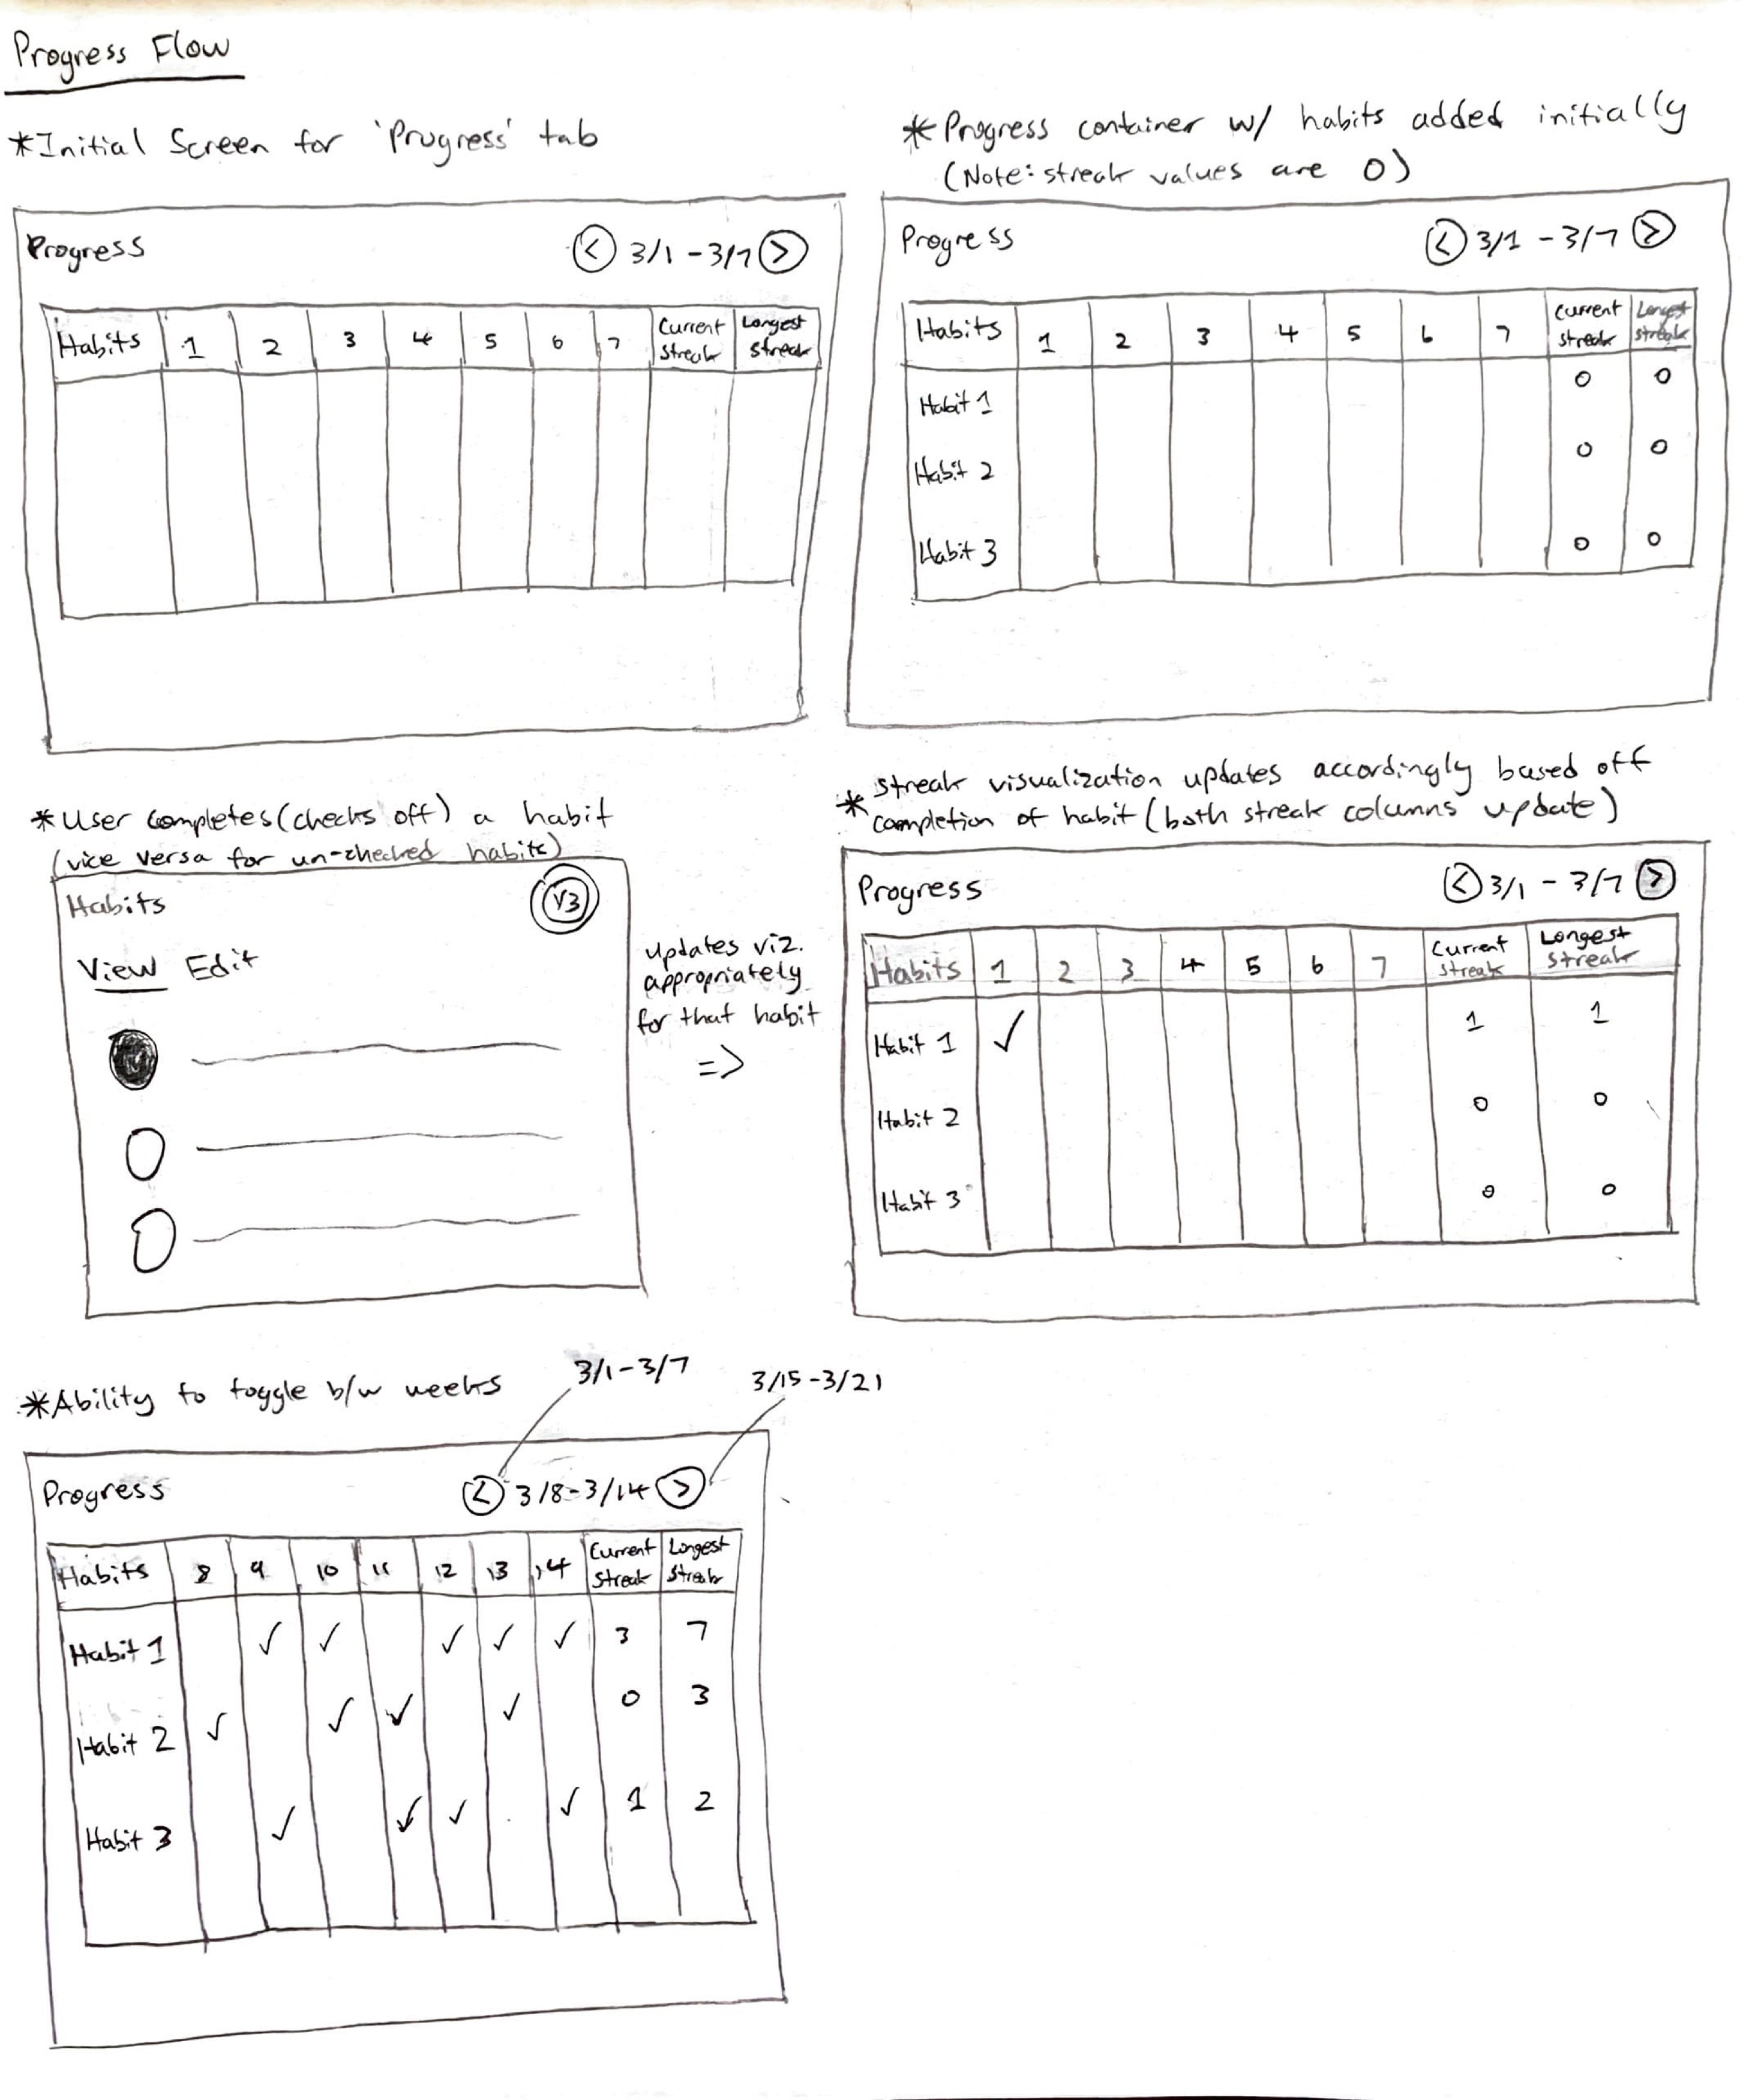 Progress Flow
*Initial Screen for 'Progress' tab
Progress < 3/1 - 3/7 >
Habits 1 2 3 4 5 6 7 Current Streak Longest Streak
*Progress container w/ habits added initially
(Note: streak values are 0)
Progress < 3/1 - 3/7 >
Habits 1 2 3 4 5 6 7 Current streak Longest streak
Habit 1 0 0
Habit 2 0 0
Habit 3 0 0
*User completes (checks off) a habit
(vice versa for un-checked habits)
Habits 1/3
View Edit
updates viz.
appropriately
for that habit
=>
* Streak visualization updates accordingly based off
completion of habit (both streak columns update)
Progress < 3/1 - 3/7 >
Habits 1 2 3 4 5 6 7 Current Streak Longest Streak
Habit 1 ✓ 1 1
Habit 2 0 0
Habit 3 0 0
*Ability to toggle b/w weeks
3/1-3/7
3/15-3/21
Progress < 3/8-3/14 >
Habits 8 9 10 11 12 13 14 Current Streak Longest Streak
Habit 1 ✓ ✓ ✓ ✓ ✓ 3 7
Habit 2 ✓ ✓ ✓ ✓ 0 3
Habit 3 ✓ ✓ ✓ ✓ 1 2